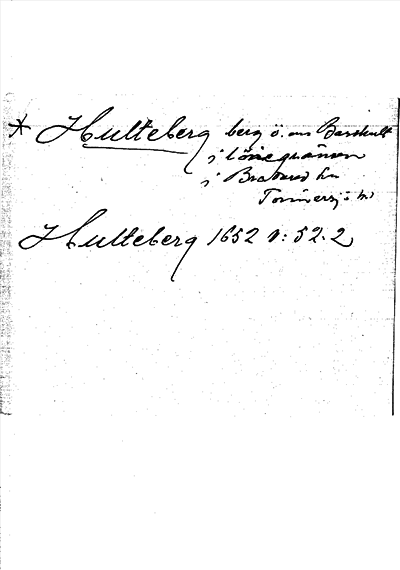 * Hulteberg berg ö. om Barkhult
i länegränsen
i Bratared sn
Tönnersjö hd
Hulteberg 1652 n: 52.2